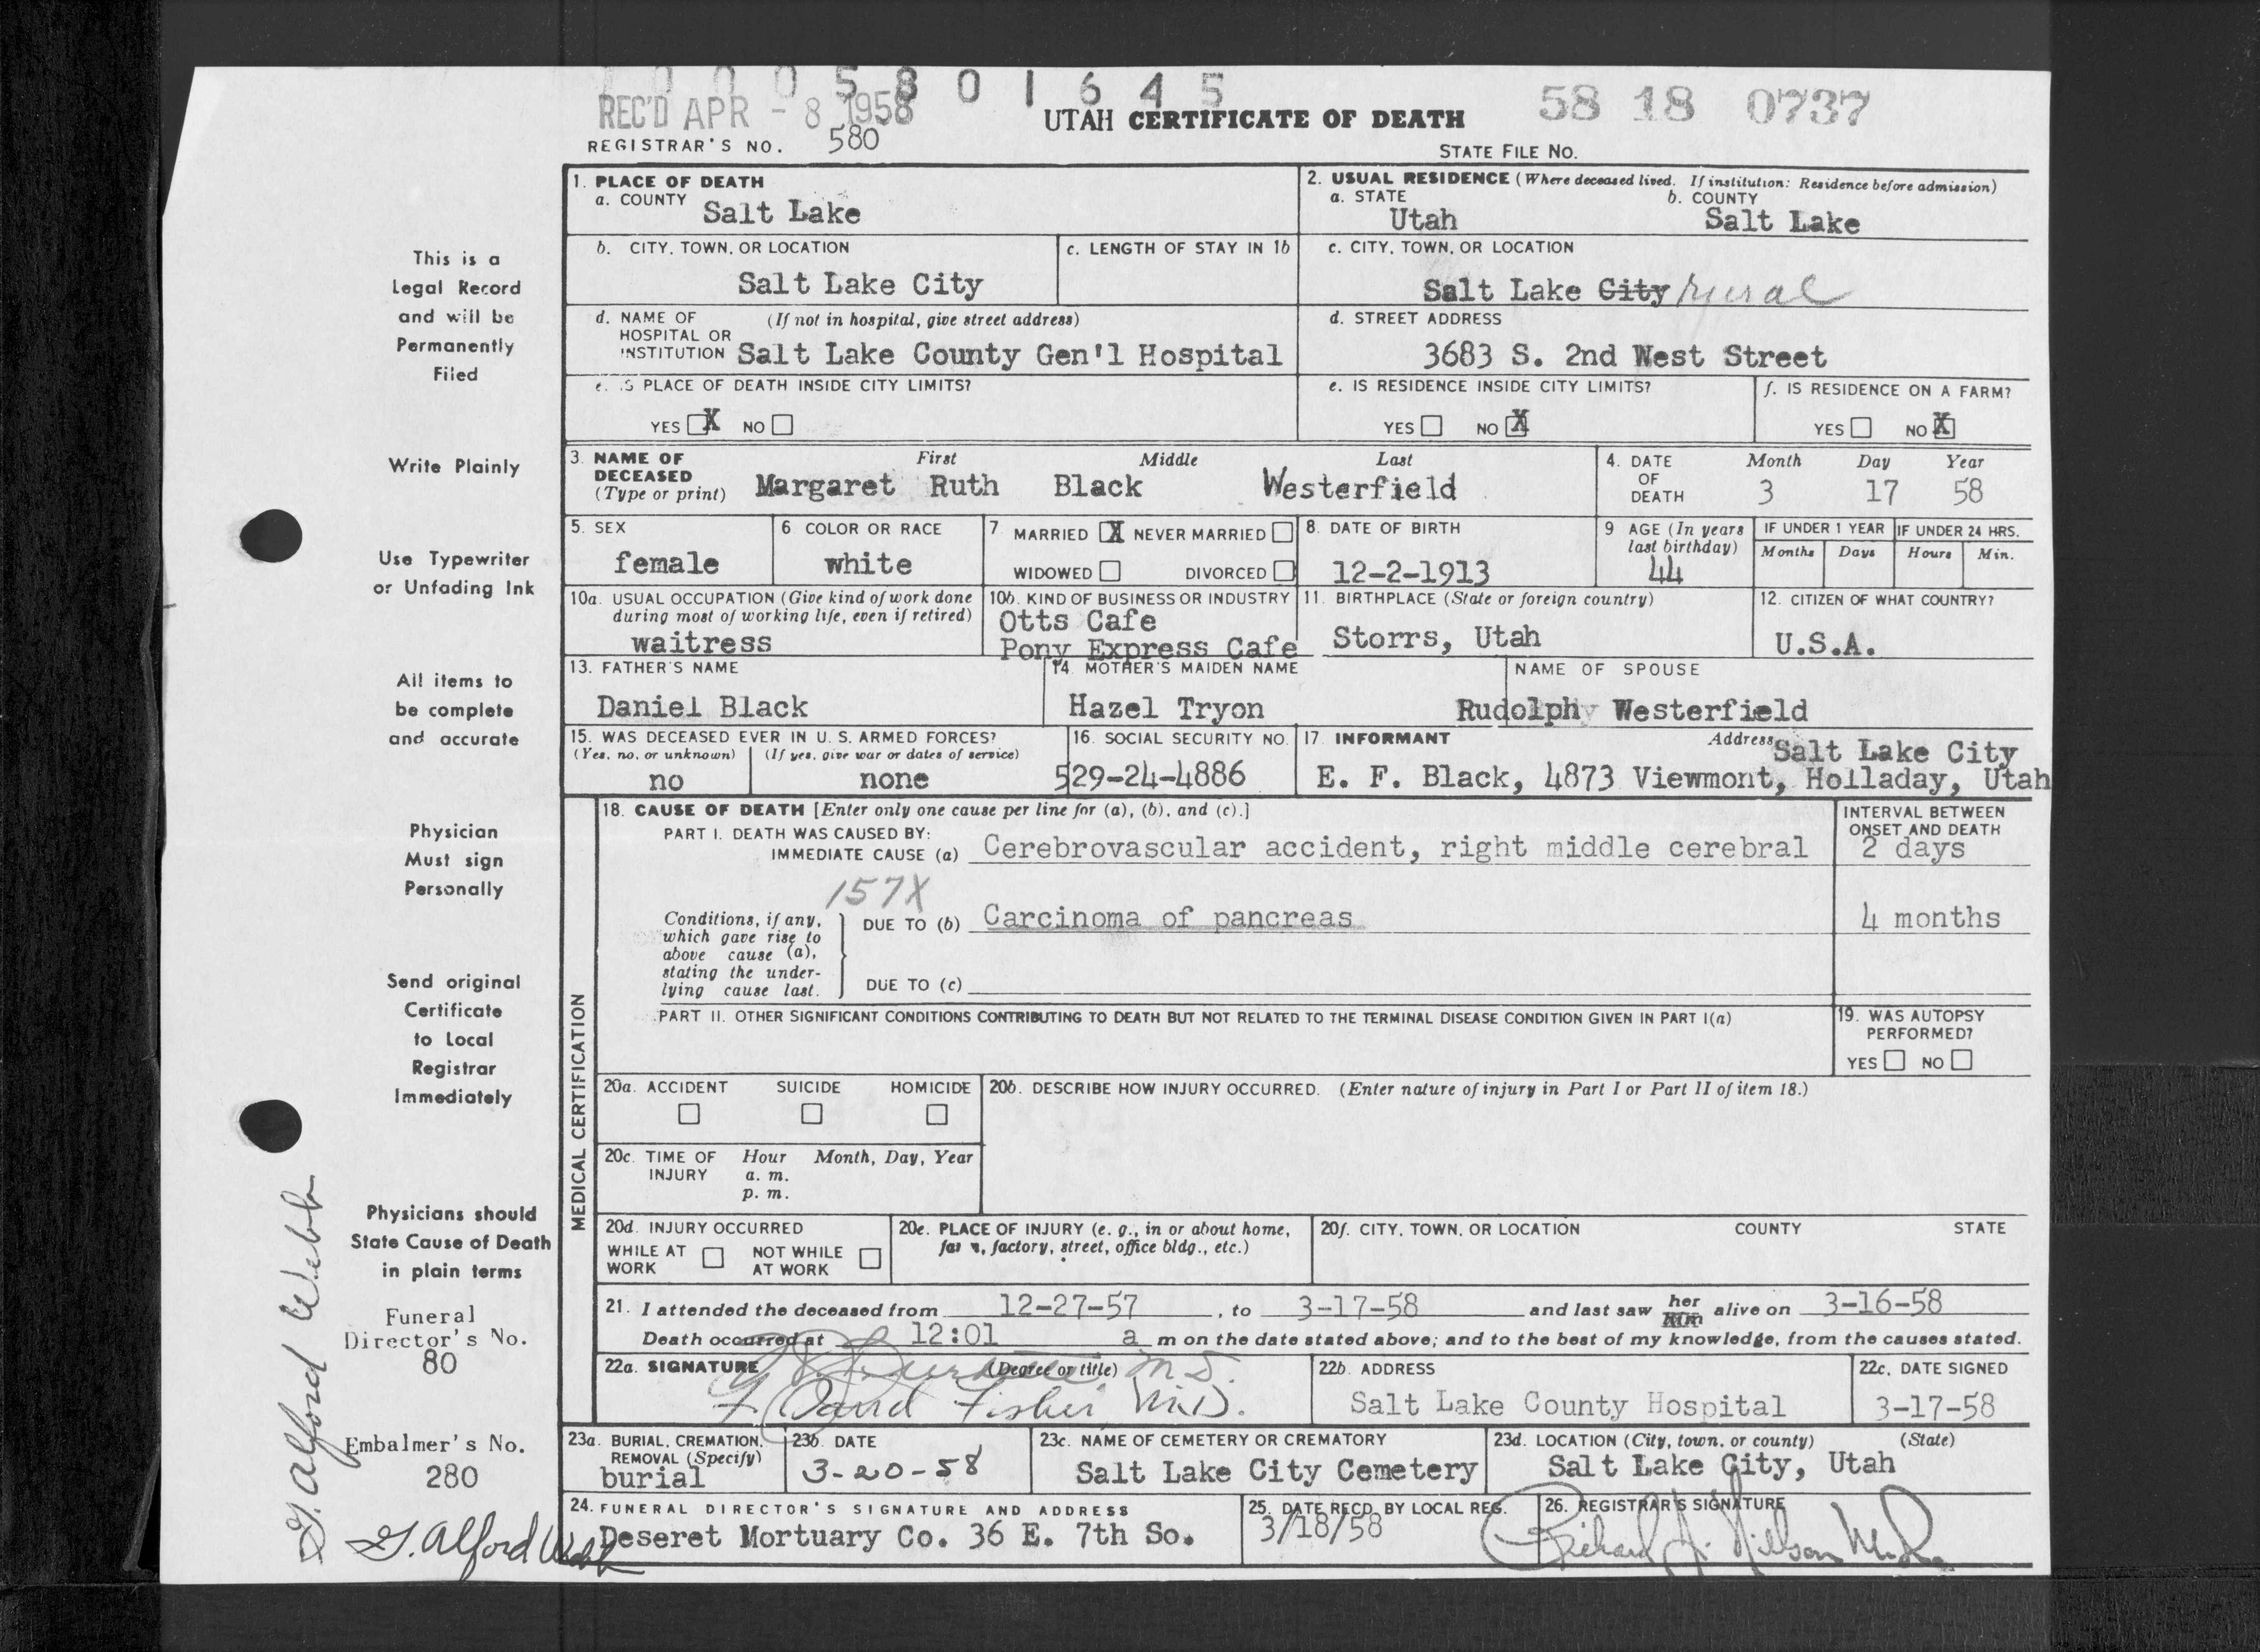 0005801645
REC'D APR - 8 1958
UTAH CERTIFICATE OF DEATH
58 18 0737
REGISTRAR'S NO. 580
STATE FILE NO.
This is a
Legal Record
and will be
Permanently
Filed
Write Plainly
Use Typewriter
or Unfading Ink
All items to
be complete
and accurate
Physician
Must sign
Personally
Send original
Certificate
to Local
Registrar
Immediately
Physicians should
State Cause of Death
in plain terms
Funeral
Director's No.
80
Embalmer's No.
280
G. Alford Webb
G. Alford Webb
1. PLACE OF DEATH
a. COUNTY Salt Lake
2. USUAL RESIDENCE (Where deceased lived. If institution: Residence before admission)
a. STATE Utah b. COUNTY Salt Lake
b. CITY, TOWN, OR LOCATION
Salt Lake City
c. LENGTH OF STAY IN 1b
c. CITY, TOWN, OR LOCATION
Salt Lake City rural
d. NAME OF (If not in hospital, give street address)
HOSPITAL OR
INSTITUTION Salt Lake County Gen'l Hospital
d. STREET ADDRESS
3683 S. 2nd West Street
e. IS PLACE OF DEATH INSIDE CITY LIMITS?
YES X NO
e. IS RESIDENCE INSIDE CITY LIMITS?
YES NO X
f. IS RESIDENCE ON A FARM?
YES NO X
3. NAME OF First Middle Last
DECEASED
(Type or print) Margaret Ruth Black Westerfield
4. DATE Month Day Year
OF
DEATH 3 17 58
5. SEX
female
6 COLOR OR RACE
white
7 MARRIED X NEVER MARRIED
WIDOWED DIVORCED
8. DATE OF BIRTH
12-2-1913
9 AGE (In years
last birthday)
44
IF UNDER 1 YEAR IF UNDER 24 HRS.
Months Days Hours Min.
10a. USUAL OCCUPATION (Give kind of work done
during most of working life, even if retired)
waitress
10b. KIND OF BUSINESS OR INDUSTRY
Otts Cafe
Pony Express Cafe
11. BIRTHPLACE (State or foreign country)
Storrs, Utah
12. CITIZEN OF WHAT COUNTRY?
U.S.A.
13. FATHER'S NAME
Daniel Black
14. MOTHER'S MAIDEN NAME
Hazel Tryon
NAME OF SPOUSE
Rudolph Westerfield
15. WAS DECEASED EVER IN U. S. ARMED FORCES?
(Yes, no, or unknown) (If yes, give war or dates of service)
no none
16. SOCIAL SECURITY NO.
529-24-4886
17. INFORMANT Address Salt Lake City
E. F. Black, 4873 Viewmont, Holladay, Utah
MEDICAL CERTIFICATION
18. CAUSE OF DEATH [Enter only one cause per line for (a), (b), and (c).]
INTERVAL BETWEEN
ONSET AND DEATH
PART I. DEATH WAS CAUSED BY:
IMMEDIATE CAUSE (a) Cerebrovascular accident, right middle cerebral 2 days
157X
Conditions, if any,
which gave rise to
above cause (a),
stating the under-
lying cause last.
DUE TO (b) Carcinoma of pancreas 4 months
DUE TO (c)
PART II. OTHER SIGNIFICANT CONDITIONS CONTRIBUTING TO DEATH BUT NOT RELATED TO THE TERMINAL DISEASE CONDITION GIVEN IN PART I(a)
19. WAS AUTOPSY
PERFORMED?
YES NO
20a. ACCIDENT SUICIDE HOMICIDE
20b. DESCRIBE HOW INJURY OCCURRED. (Enter nature of injury in Part I or Part II of item 18.)
20c. TIME OF Hour Month, Day, Year
INJURY a. m.
p. m.
20d. INJURY OCCURRED
WHILE AT NOT WHILE
WORK AT WORK
20e. PLACE OF INJURY (e. g., in or about home,
farm, factory, street, office bldg., etc.)
20f. CITY, TOWN, OR LOCATION COUNTY STATE
21. I attended the deceased from 12-27-57, to 3-17-58 and last saw her him alive on 3-16-58
Death occurred at 12:01 a m on the date stated above; and to the best of my knowledge, from the causes stated.
22a. SIGNATURE (Degree or title) M.D.
F David Fisher M.D.
22b. ADDRESS
Salt Lake County Hospital
22c. DATE SIGNED
3-17-58
23a. BURIAL, CREMATION,
REMOVAL (Specify)
burial
23b. DATE
3-20-58
23c. NAME OF CEMETERY OR CREMATORY
Salt Lake City Cemetery
23d. LOCATION (City, town, or county) (State)
Salt Lake City, Utah
24. FUNERAL DIRECTOR'S SIGNATURE AND ADDRESS
Deseret Mortuary Co. 36 E. 7th So.
25. DATE RECD. BY LOCAL REG.
3/18/58
26. REGISTRAR'S SIGNATURE
Richard A. Nilson M.D.